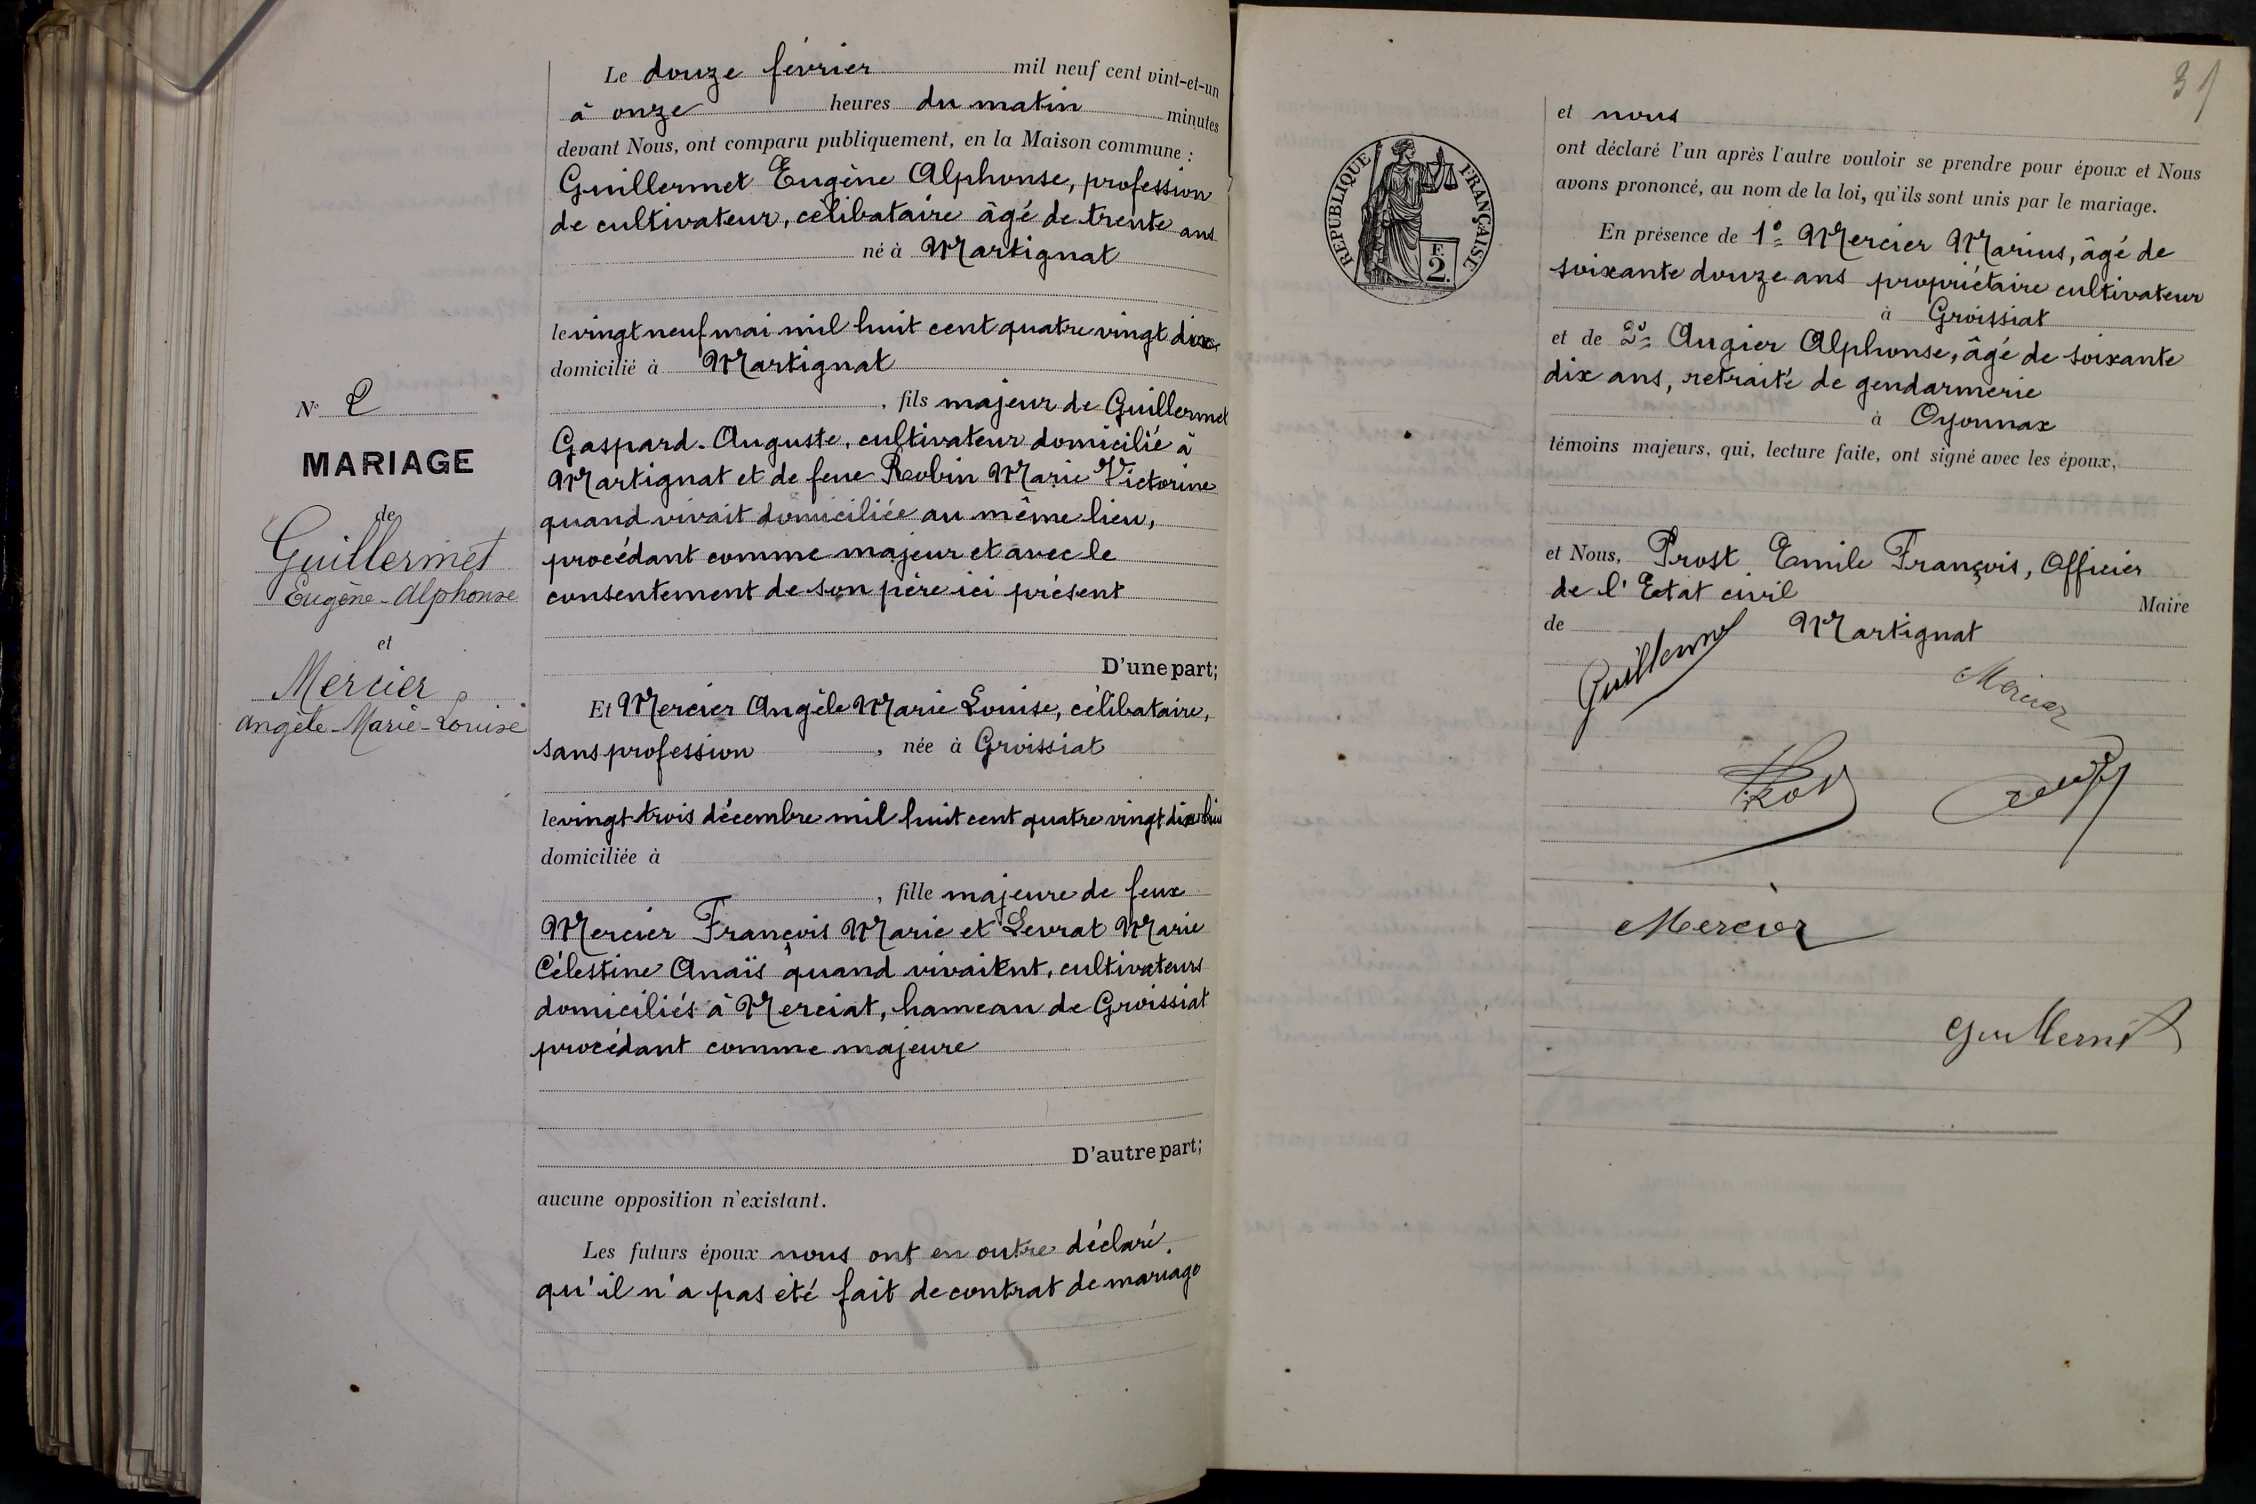 Le douze février mil neuf cent vint-et-un
à onze heures du matin minutes
devant Nous, ont comparu publiquement, en la Maison commune :
Guillermet Eugène Alphonse, profession
de cultivateur, célibataire âgé de trente ans
né à Martignat
le vingt neuf mai mil huit cent quatre vingt dix
domicilié à Martignat
, fils majeur de Guillermet
Gaspard-Auguste, cultivateur domicilié à
Martignat et de feue Robin Marie Victorine
quand vivait domiciliée au même lieu,
procédant comme majeur et avec le
consentement de son père ici présent
D'une part;
N° 2
MARIAGE
de
Guillermet
Eugène-Alphonse
et
Mercier
Angèle-Marie-Louise
Et Mercier Angèle Marie Louise, célibataire,
sans profession, née à Groissiat
le vingt trois décembre mil huit cent quatre vingt dix huit
domiciliée à
, fille majeure de feux
Mercier François Marie et Levrat Marie
Célestine Anaïs quand vivaient, cultivateurs
domiciliés à Merciat, hameau de Groissiat
procédant comme majeure
D'autre part;
aucune opposition n'existant.
Les futurs époux nous ont en outre déclaré
qu'il n'a pas été fait de contrat de mariage
31
RÉPUBLIQUE FRANÇAISE
F.
2.
et nous
ont déclaré l'un après l'autre vouloir se prendre pour époux et Nous
avons prononcé, au nom de la loi, qu'ils sont unis par le mariage.
En présence de 1° Mercier Marius, âgé de
soixante douze ans propriétaire cultivateur
à Groissiat
et de 2° Augier Alphonse, âgé de soixante
dix ans, retraité de gendarmerie
à Oyonnax
témoins majeurs, qui, lecture faite, ont signé avec les époux,
et Nous, Prost Emile François, Officier
de l'Etat civil Maire
de Martignat
Guillermet
Mercier
Prost
Mercier
Guillermet